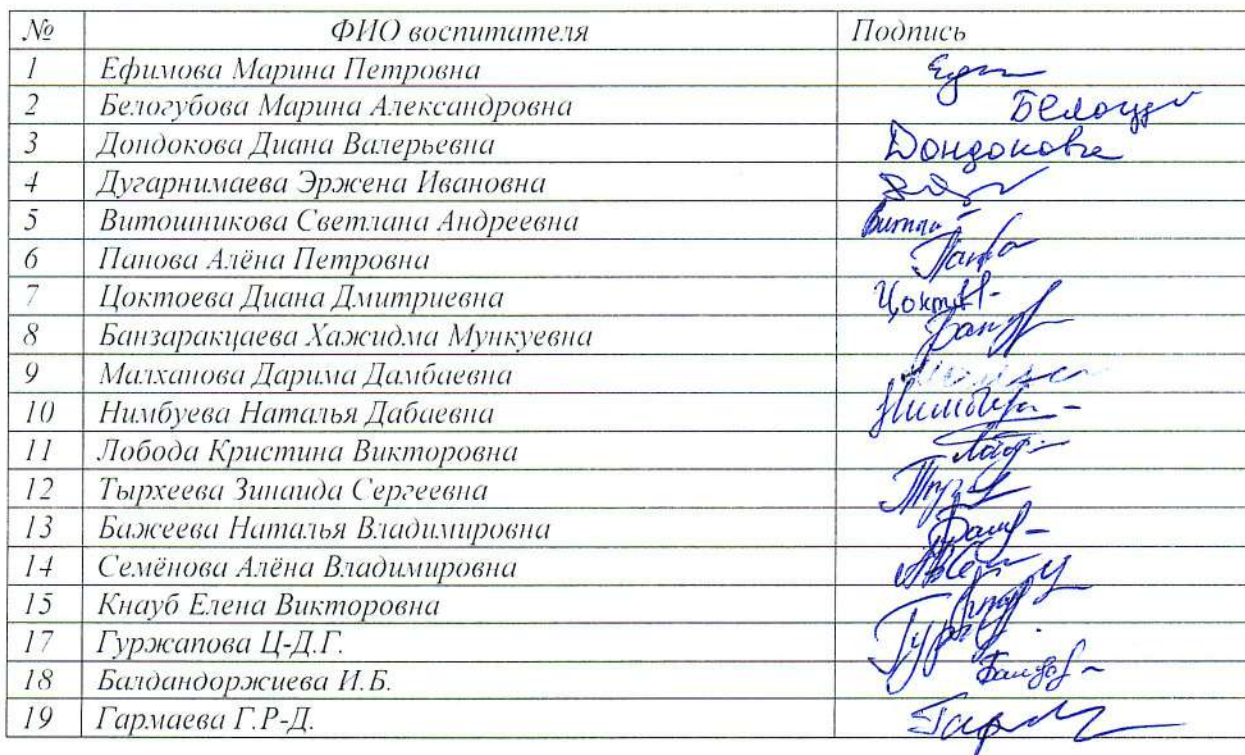 № ФИО воспитателя Подпись
1 Ефимова Марина Петровна
2 Белогубова Марина Александровна
3 Дондокова Диана Валерьевна Дондокова
4 Дугарнимаева Эржена Ивановна
5 Витошникова Светлана Андреевна
6 Панова Алёна Петровна
7 Цоктоева Диана Дмитриевна
8 Банзаракцаева Хажидма Мункуевна
9 Малханова Дарима Дамбаевна
10 Нимбуева Наталья Дабаевна
11 Лобода Кристина Викторовна
12 Тырхеева Зинаида Сергеевна
13 Бажеева Наталья Владимировна
14 Семёнова Алёна Владимировна
15 Кнауб Елена Викторовна
17 Гуржапова Ц-Д.Г.
18 Балдандоржиева И.Б.
19 Гармаева Г.Р-Д.